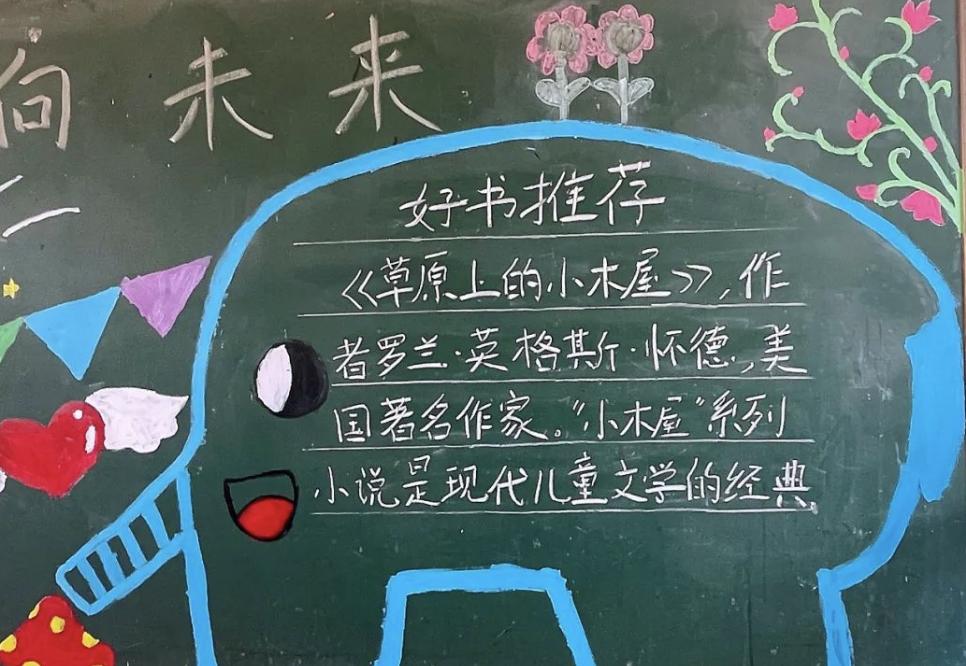 向未来
好书推荐
《草原上的小木屋》,作
者罗兰·英格斯·怀德,美
国著名作家。“小木屋”系列
小说是现代儿童文学的经典